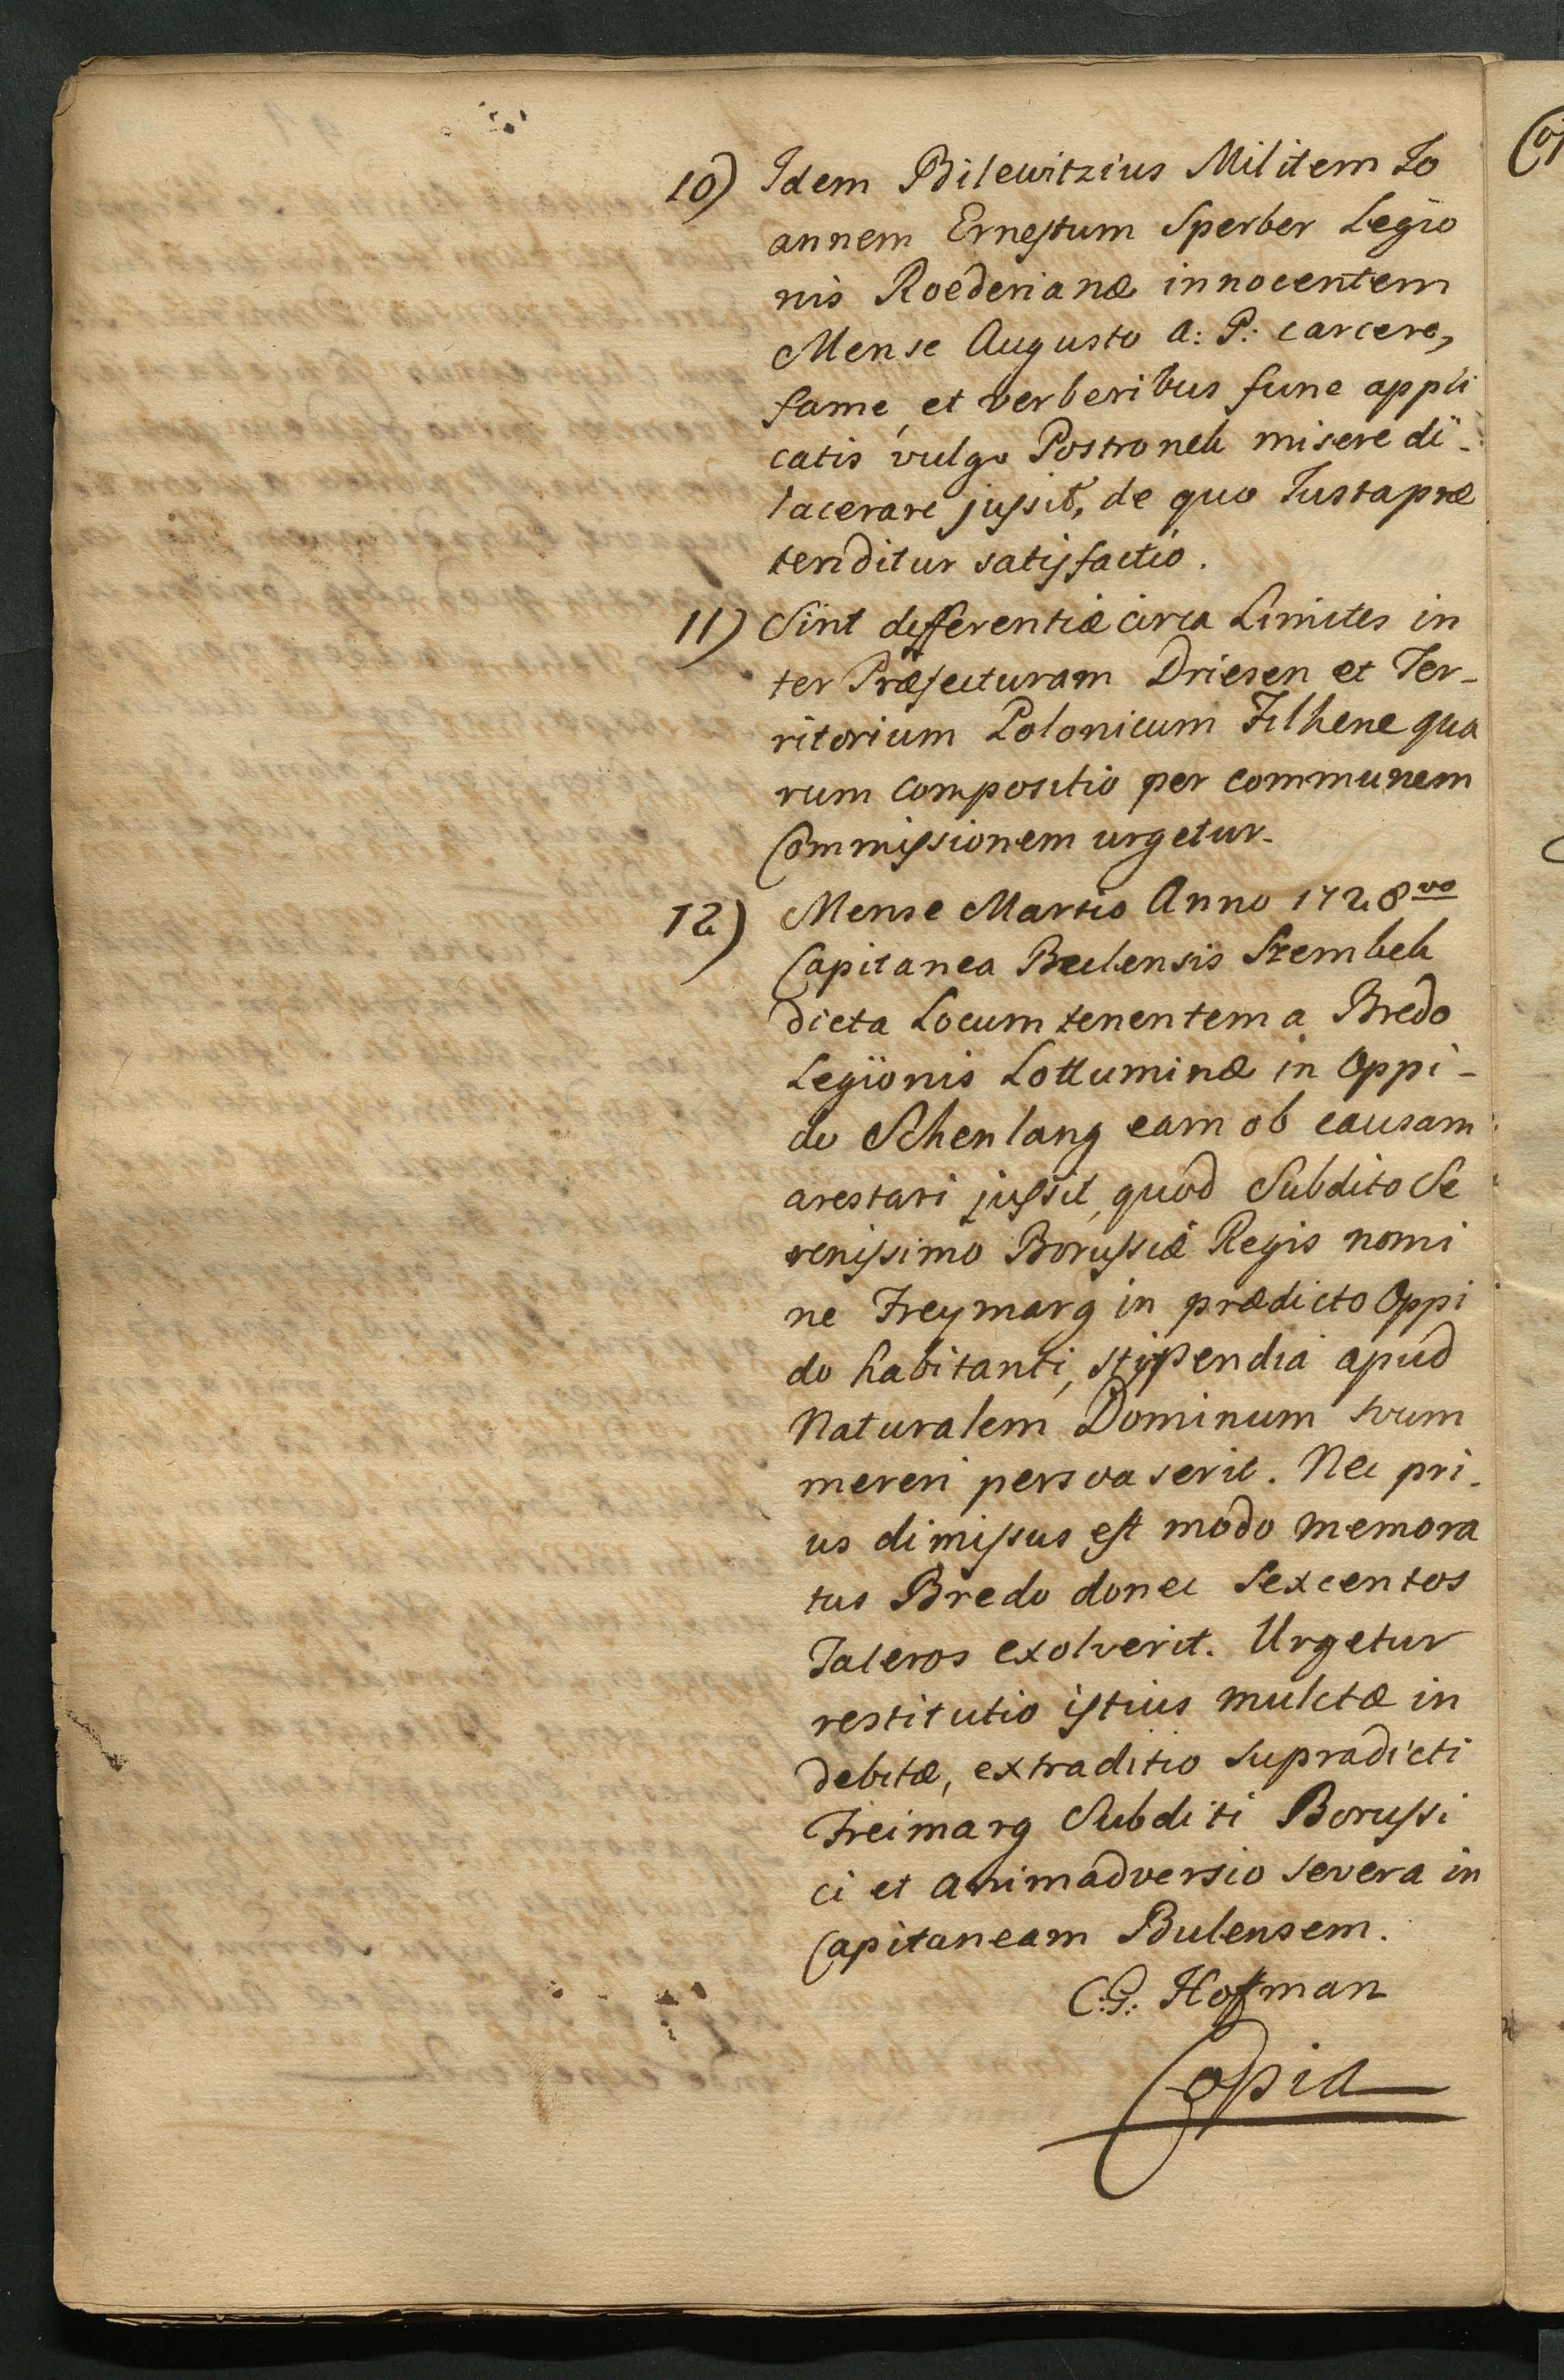 10) Idem Bilewitzius Militem Jo
annem Ernestum Sperber Legio
nis Roederianæ innocentem
Mense Augusto a: P: carcere,
fame, et verberibus fune appli
catis vulgo Postronek misere di-
lacerare jussit, de quo Justa præ
tenditur satisfactio.
11) Sint differentiæ circa Limites in
ter Præfecturam Driesen et Ter-
ritorium Polonicum Filhene qua
rum compositio per communem
Commissionem urgetur.
12) Mense Martio Anno 1728vo
Capitanea Bulensis Szembek
dicta Locum tenentem a Bredo
Legionis Lottuminæ in Oppi-
do Schenlang eam ob causam
arestari jussit, quod Subdito Se
renissimo Borussiæ Regis nomi
ne Freymarg in prædicto Oppi
do habitanti, stipendia apud
Naturalem Dominum suum
mereri persvaserit. Nec pri-
us dimissus est modo memora
tus Bredo donec Sexcentos
Taleros exolverit. Urgetur
restitutio istius mulctæ in
debitæ, extraditio supradicti
Freimarg Subditi Borussi
ci et animadversio severa in
Capitaneam Bulensem.
C:G: Hoffman
Copia